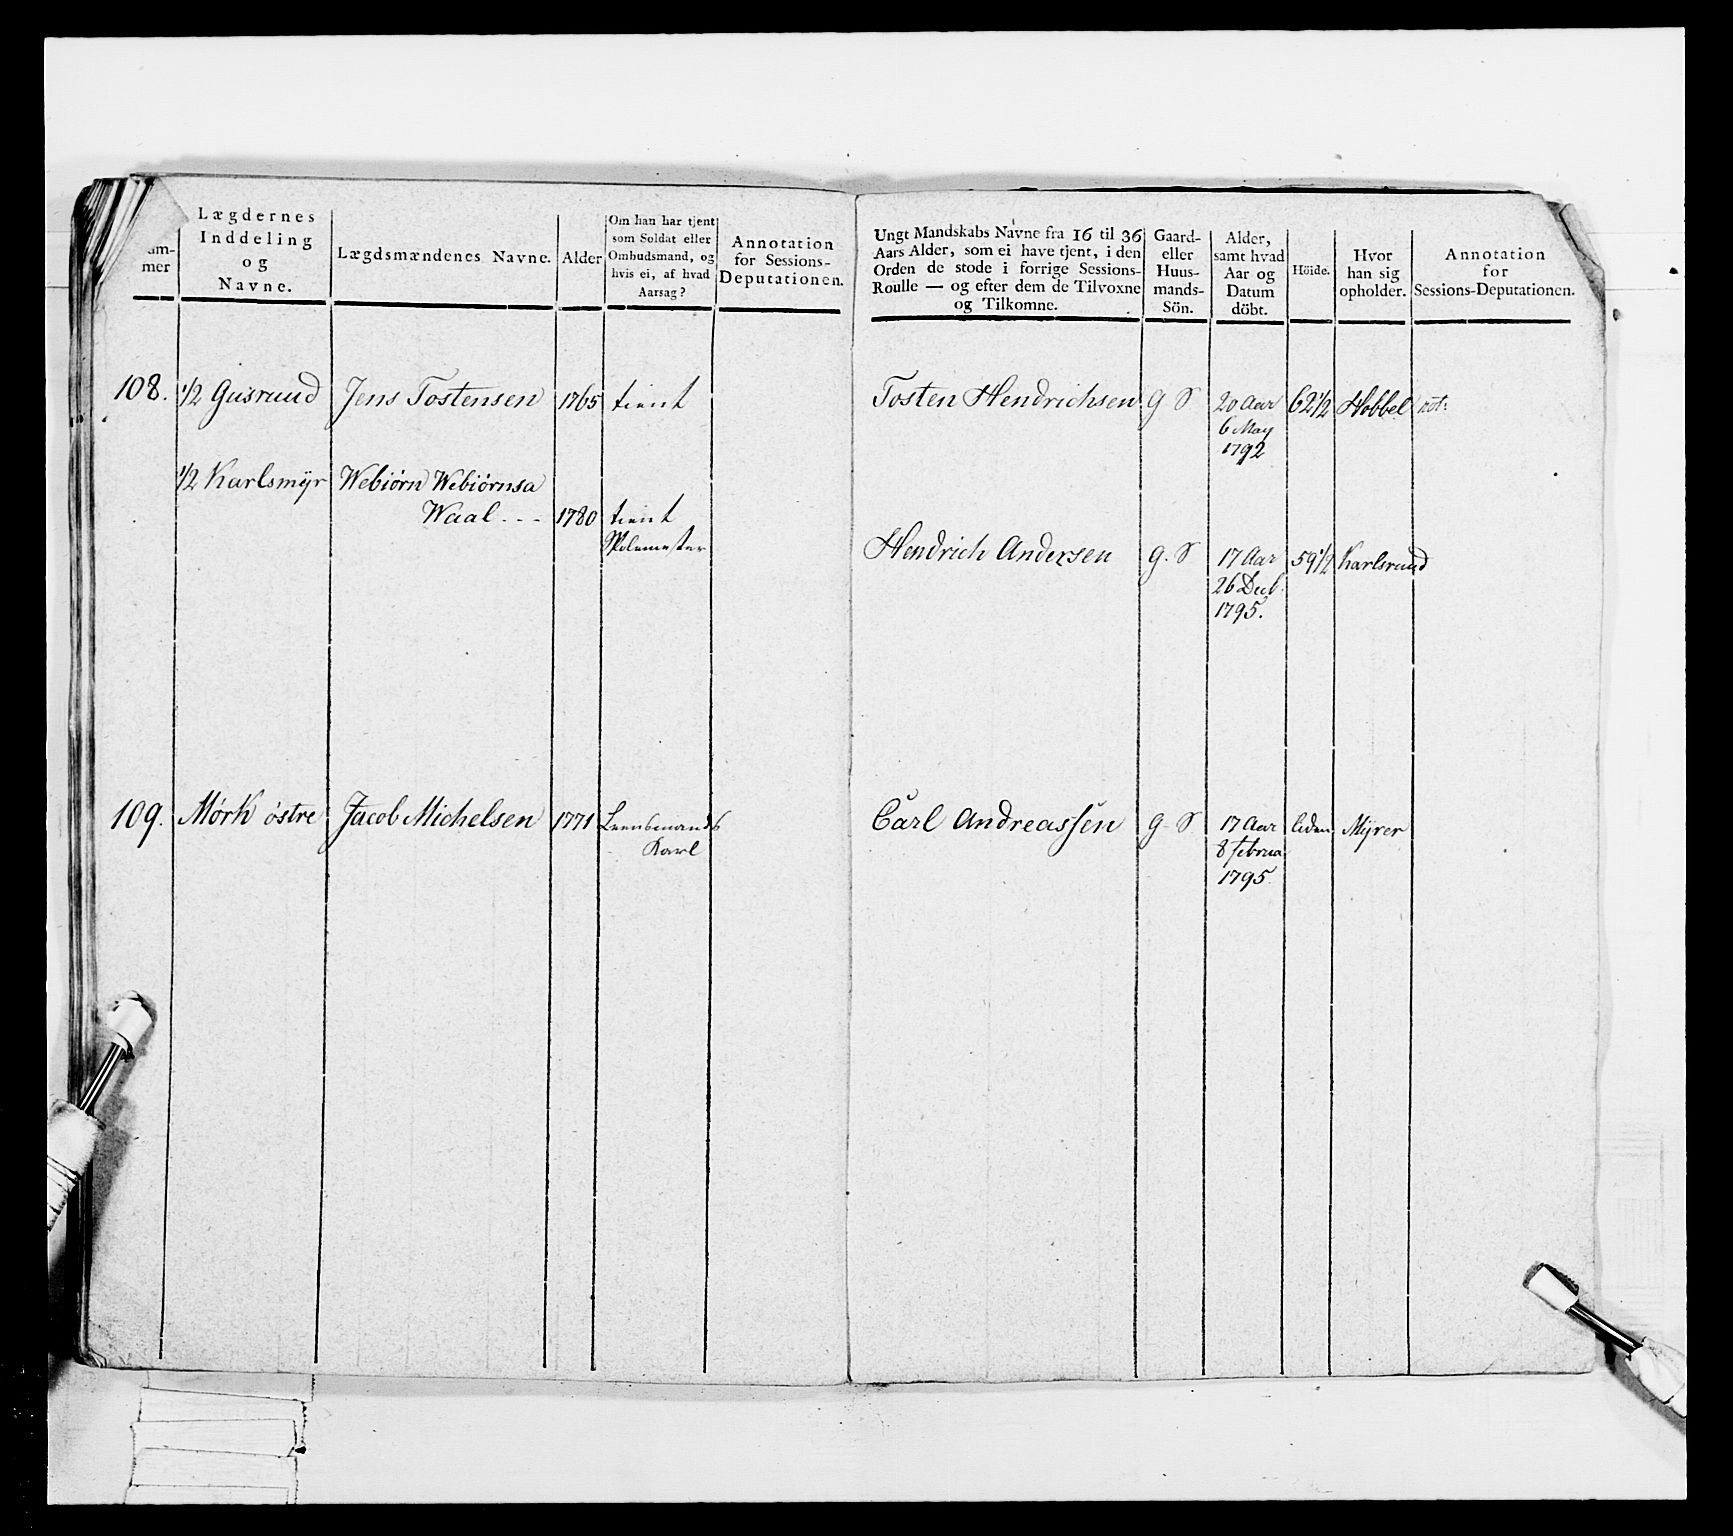 mer
Lægdernes
Inddeling
og
Navne.
Lægdsmændenes Navne.
Alder
Om han har tjent
som Soldat eller
Ombudsmand, og
hvis ei, af hvad
Aarsag?
Annotation
for Sessions-
Deputationen.
108.
1/2 Gusrund
Jens Tostensen
1765
tient
1/2 Karlsmÿr
Webiørn Webiørnsa
Waal - - -
1780
tient
Skolemester
109.
Mørk østre
Jacob Michelsen
1771
Leensmands
Karl
Ungt Mandskabs Navne fra 16 til 36
Aars Alder, som ei have tjent, i den
Orden de stode i forrige Sessions-
Roulle — og efter dem de Tilvoxne
og Tilkomne.
Gaard-
eller
Huus-
mands-
Sön.
Alder,
samt hvad
Aar og
Datum
döbt.
Höide.
Hvor
han sig
opholder.
Annotation
for
Sessions-Deputationen.
Tosten Hendrichsen
g S
20 Aar
6 May
1792
62 1/2
Hobbel
Hendrich Andersen
g. S
17 Aar
26 Decb
1795.
59 1/2
Karlsrund
Carl Andreassen
g - S
17 Aar
8 februa
1795
liden
Mÿrer